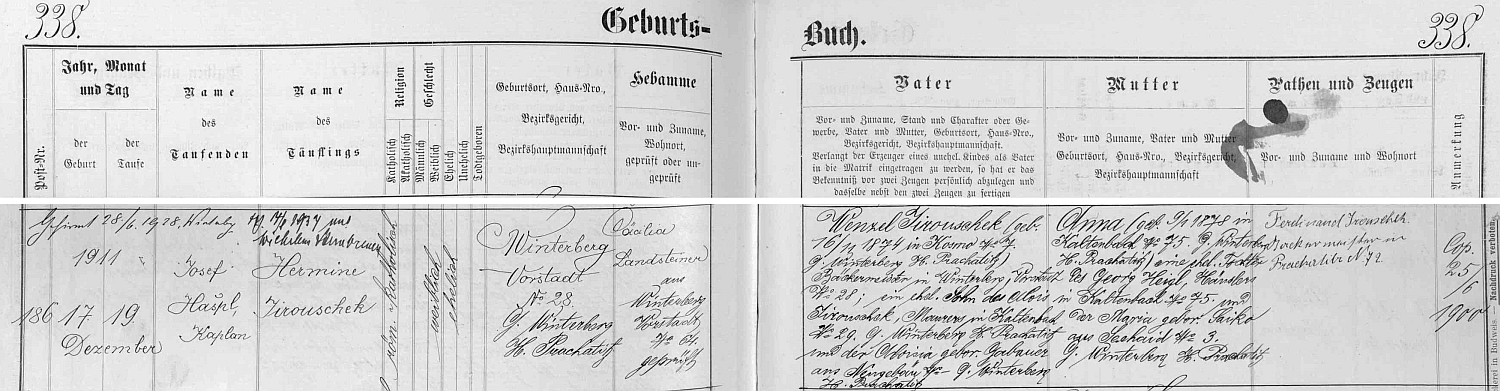 338.
Geburts-
Buch.
338.
Jahr, Monat
und Tag
der
Geburt
der
Taufe
Post-Nr.
Name
des
Taufenden
Name
des
Täuflings
Religion
Katholisch
Akatholisch
Geschlecht
Männlich
Weiblich
Ehelich
Unehelich
Todtgeboren
Geburtsort, Haus-Nro.,
Bezirksgericht,
Bezirkshauptmannschaft
Hebamme
Vor- und Zuname,
Wohnort,
geprüft oder un-
geprüft
Vater
Vor- und Zuname, Stand und Charakter oder Ge-
werbe, Vater und Mutter, Geburtsort, Haus-Nro.,
Bezirksgericht, Bezirkshauptmannschaft.
Verlangt der Erzeuger eines unehel. Kindes als Vater
in die Matrik eingetragen zu werden, so hat er das
Bekenntniß vor zwei Zeugen persönlich abzulegen und
dasselbe nebst den zwei Zeugen zu fertigen
Mutter
Vor- und Zuname, Vater und Mutter
Geburtsort, Haus-Nro., Bezirksgericht,
Bezirkshauptmannschaft
Pathen und Zeugen
Vor- und Zuname und Wohnort
Anmerkung
1928
1937
1911
186
17
19.
Dezember
Josef
Haspl,
Kaplan
Hermine
Jirouschek
röm. katholisch
weiblich
ehelich
Winterberg
Vorstadt
No 28
G. Winterberg
H. Prachatitz
Landsteiner
aus
Winterberg
Vorstadt
No 64.
geprüft
Wenzel Jirouschek (geb.
1874 in No 7.
G. Winterberg H. Prachatitz)
Bäckermeister in Winterberg, Vorstadt
No 28; ein ehel. Sohn des Alois
Jirouschek, Maurers in Kaltenbach
No 29, G. Winterberg H. Prachatitz
und der Aloisia gebor. Gabauer
aus G. Winterberg
H. Prachatitz
Anna (geb. 1878 in
Kaltenbach No 75. G. Winterberg
H. Prachatitz) eine ehel. Tochter
des Georg Heigl, Händlers
in Kaltenbach No 75. und
der Maria gebor.
aus No 3.
G. Winterberg H. Prachatitz
Ferdinand Jirouschek
Bäckermeister in
Prachatitz N 72
Cop.
25/6
1900
in Budweis. — Nachdruck verboten.